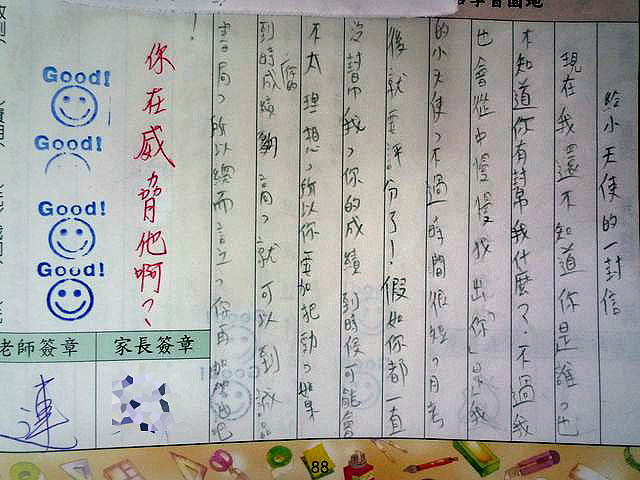 學習園地
給小天使的一封信
現在我還不知道你是誰、也
不知道你有幫我什麼?不過我
也會從中慢慢找出「你」是我
的小天使、不過時間很短、月考
後就要評分了!假如你都一直
沒幫我、你的成績到時候可能會
不太理想、所以你要加把勁、如果
到時成績夠高、就可以到誠品
書局、所以總而言之、你再加加油吧
!
你在威脅他啊?
Good!
Good!
Good!
Good!
家長簽章
老師簽章
連
88